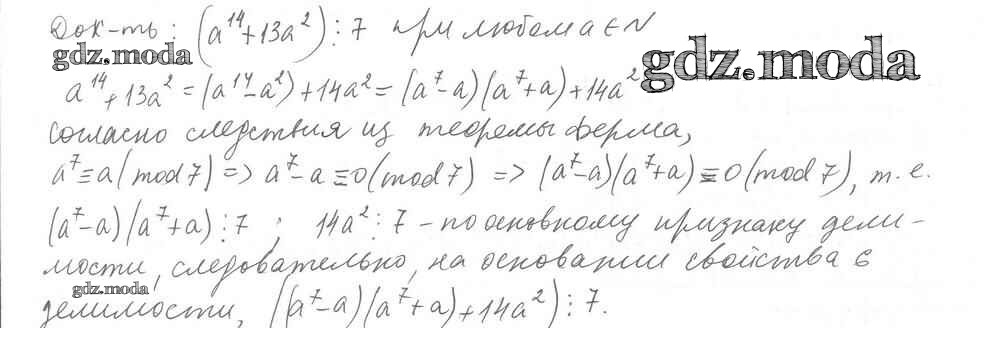 Док-ть: (a¹⁴+13a²)⋮7 при любом a∈N
gdz.moda
gdz.moda
a¹⁴+13a² = (a¹⁴-a²)+14a² = (a⁷-a)(a⁷+a)+14a²
согласно следствия из теоремы Ферма,
a⁷≡a(mod7) => a⁷-a≡0(mod7) => (a⁷-a)(a⁷+a)≡0(mod7), т.е.
(a⁷-a)(a⁷+a)⋮7; 14a²⋮7 - по основному признаку дели-
мости, следовательно, на основании свойства 6
gdz.moda
делимости, ((a⁷-a)(a⁷+a)+14a²)⋮7.